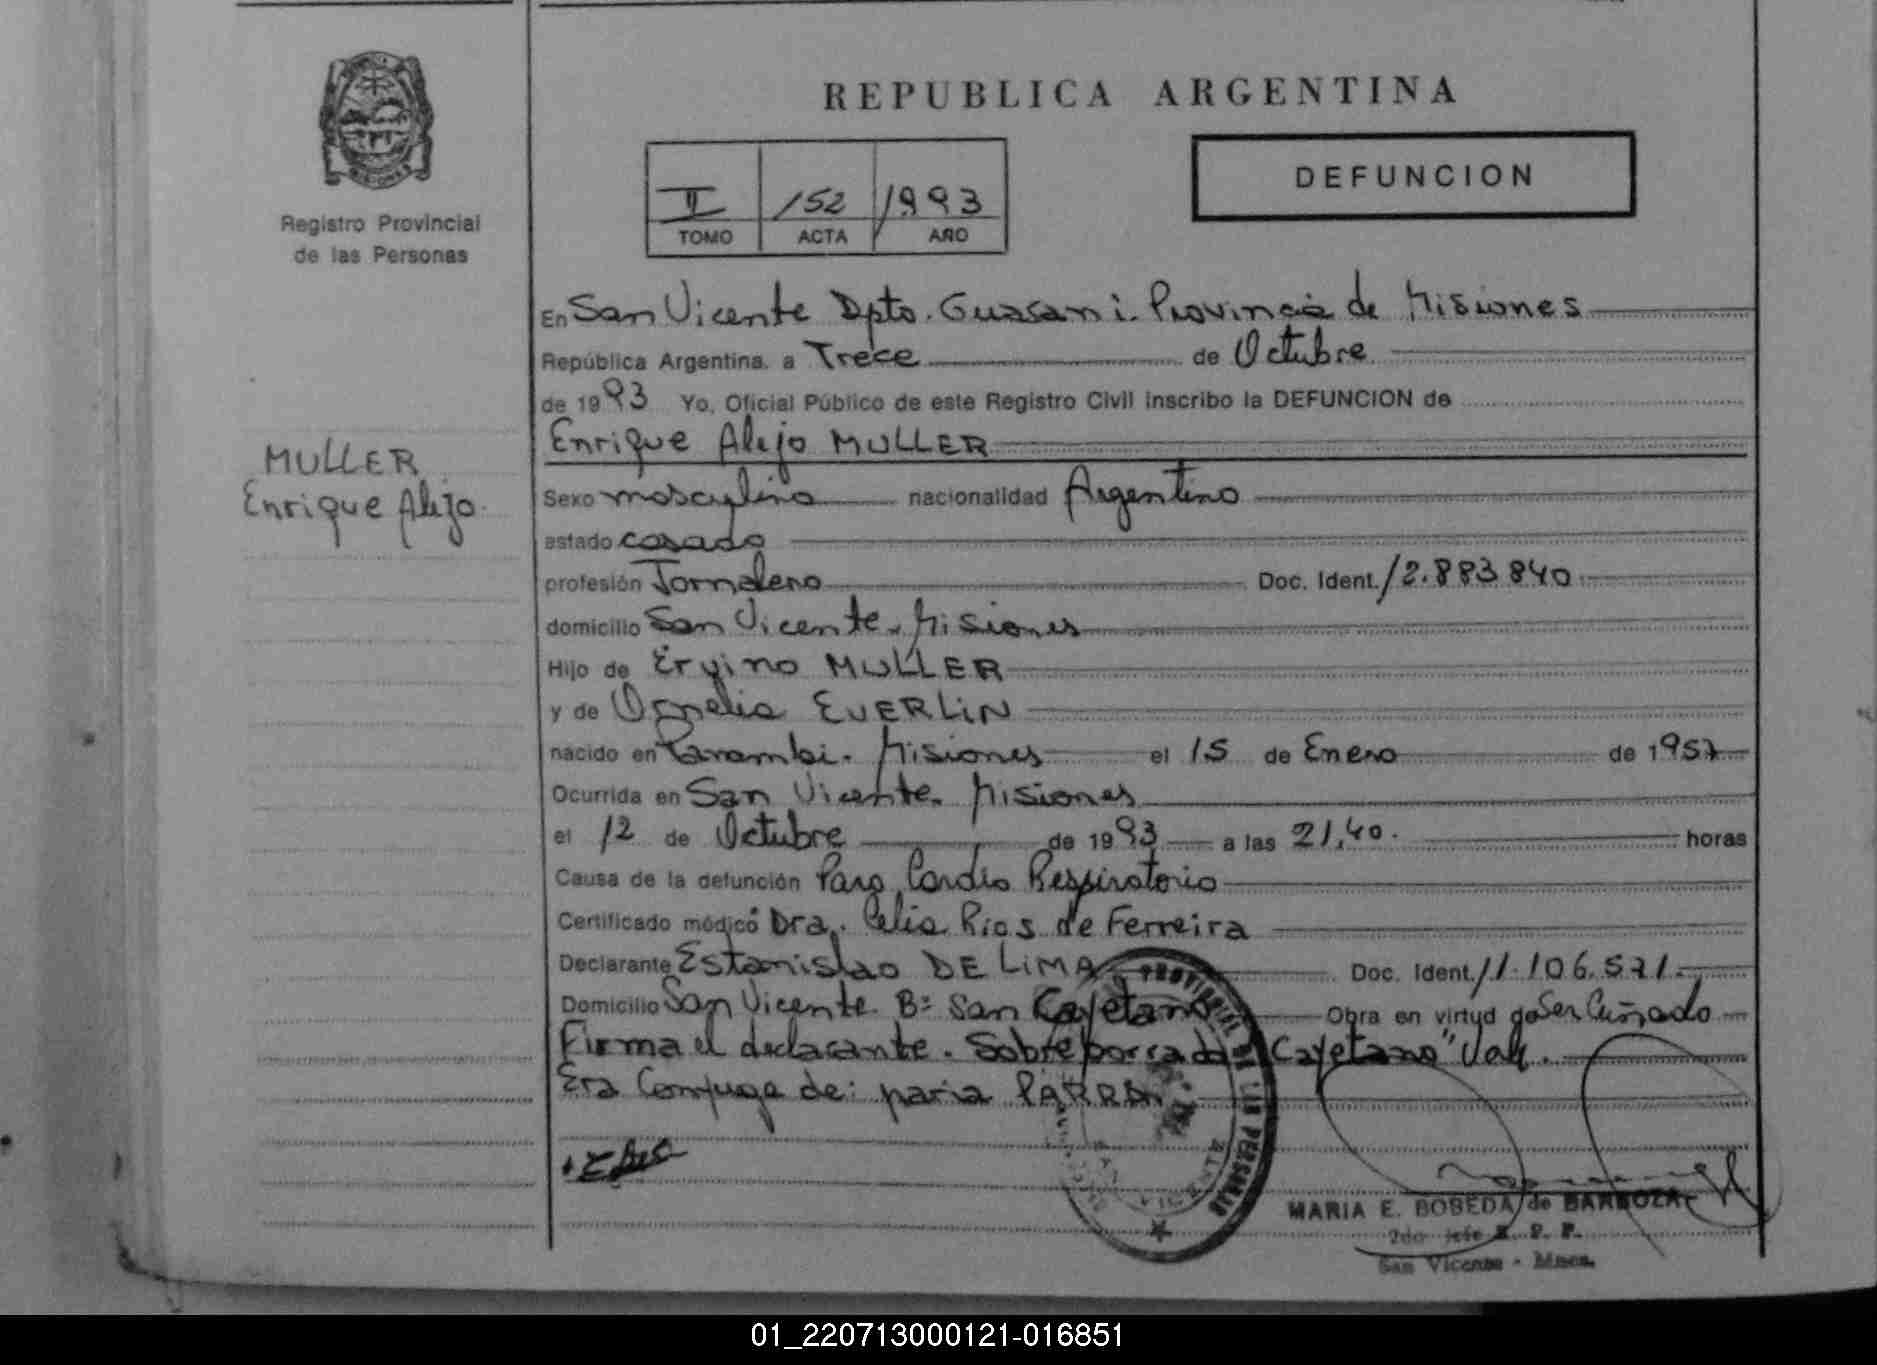 REPUBLICA ARGENTINA
DEFUNCION
II 152 1993
TOMO ACTA AÑO
MISIONES
Registro Provincial
de las Personas
MULLER
Enrique Alejo.
En San Vicente Dpto. Guarani. Provincia de Misiones
República Argentina, a Trece de Octubre
de 1993 Yo, Oficial Público de este Registro Civil inscribo la DEFUNCION de
Enrique Alejo MULLER
Sexo masculino nacionalidad Argentino
estado casado
profesión Jornalero Doc. Ident. 12.883.840
domicilio San Vicente. Misiones
Hijo de Ervino MULLER
y de Ornelia EVERLIN
nacido en Parambi. Misiones el 15 de Enero de 1957
Ocurrida en San Vicente. Misiones
el 12 de Octubre de 1993 a las 21,40. horas
Causa de la defunción Paro Cardio Respiratorio
Certificado médico Dra. Celia Rios de Ferreira
Declarante Estanislao DE LIMA Doc. Ident. 11.106.571.
Domicilio San Vicente. Bº San Cayetano Obra en virtud de Ser Cuñado
Firma el declarante. Sobreborrado "Cayetano" Vale.
Era Conyuge de: Maria PARRA
MARIA E. BOBEDA de BARBOZA
2do jefe R. P. P.
San Vicente - Mnes.
01_220713000121-016851